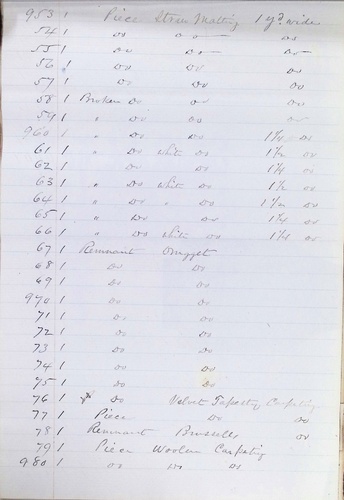 953 1 Piece Straw Matting 1 yd wide
54 1 Do Do Do
55 1 Do Do Do
56 1 Do Do Do
57 1 Do Do Do
58 1 Broken Do Do Do
59 1 " Do Do Do
960 1 " Do Do 1¼ Do
61 1 " Do White Do 1½ Do
62 1 Do Do 1¼ Do
63 1 " Do White Do 1½ Do
64 1 " Do " Do 1½ Do
65 1 " Do Do 1¼ Do
66 1 " Do White Do 1¼ Do
67 1 Remnant Drugget
68 1 Do Do
69 1 Do Do
970 1 Do Do
71 1 Do Do
72 1 Do Do
73 1 Do Do
74 1 Do Do
75 1 Do Do
76 1 Do Velvet Tapestry Carpeting
77 1 Piece Do Do
78 1 Remnant Brussells Do
79 1 Piece Woolen Carpeting
980 1 Do Do Do